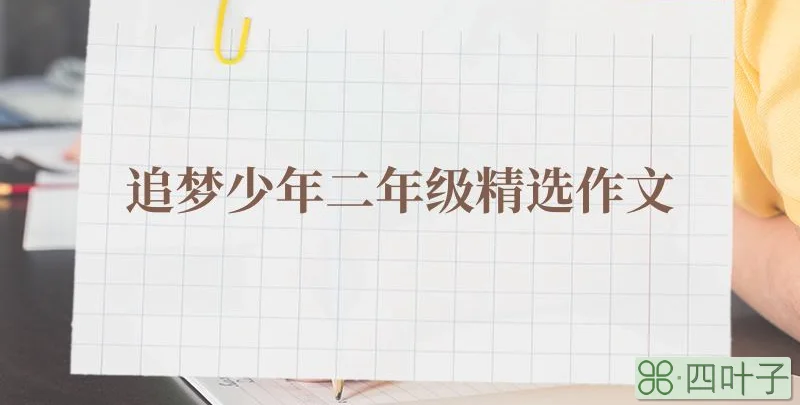 追梦少年二年级精选作文
四叶子